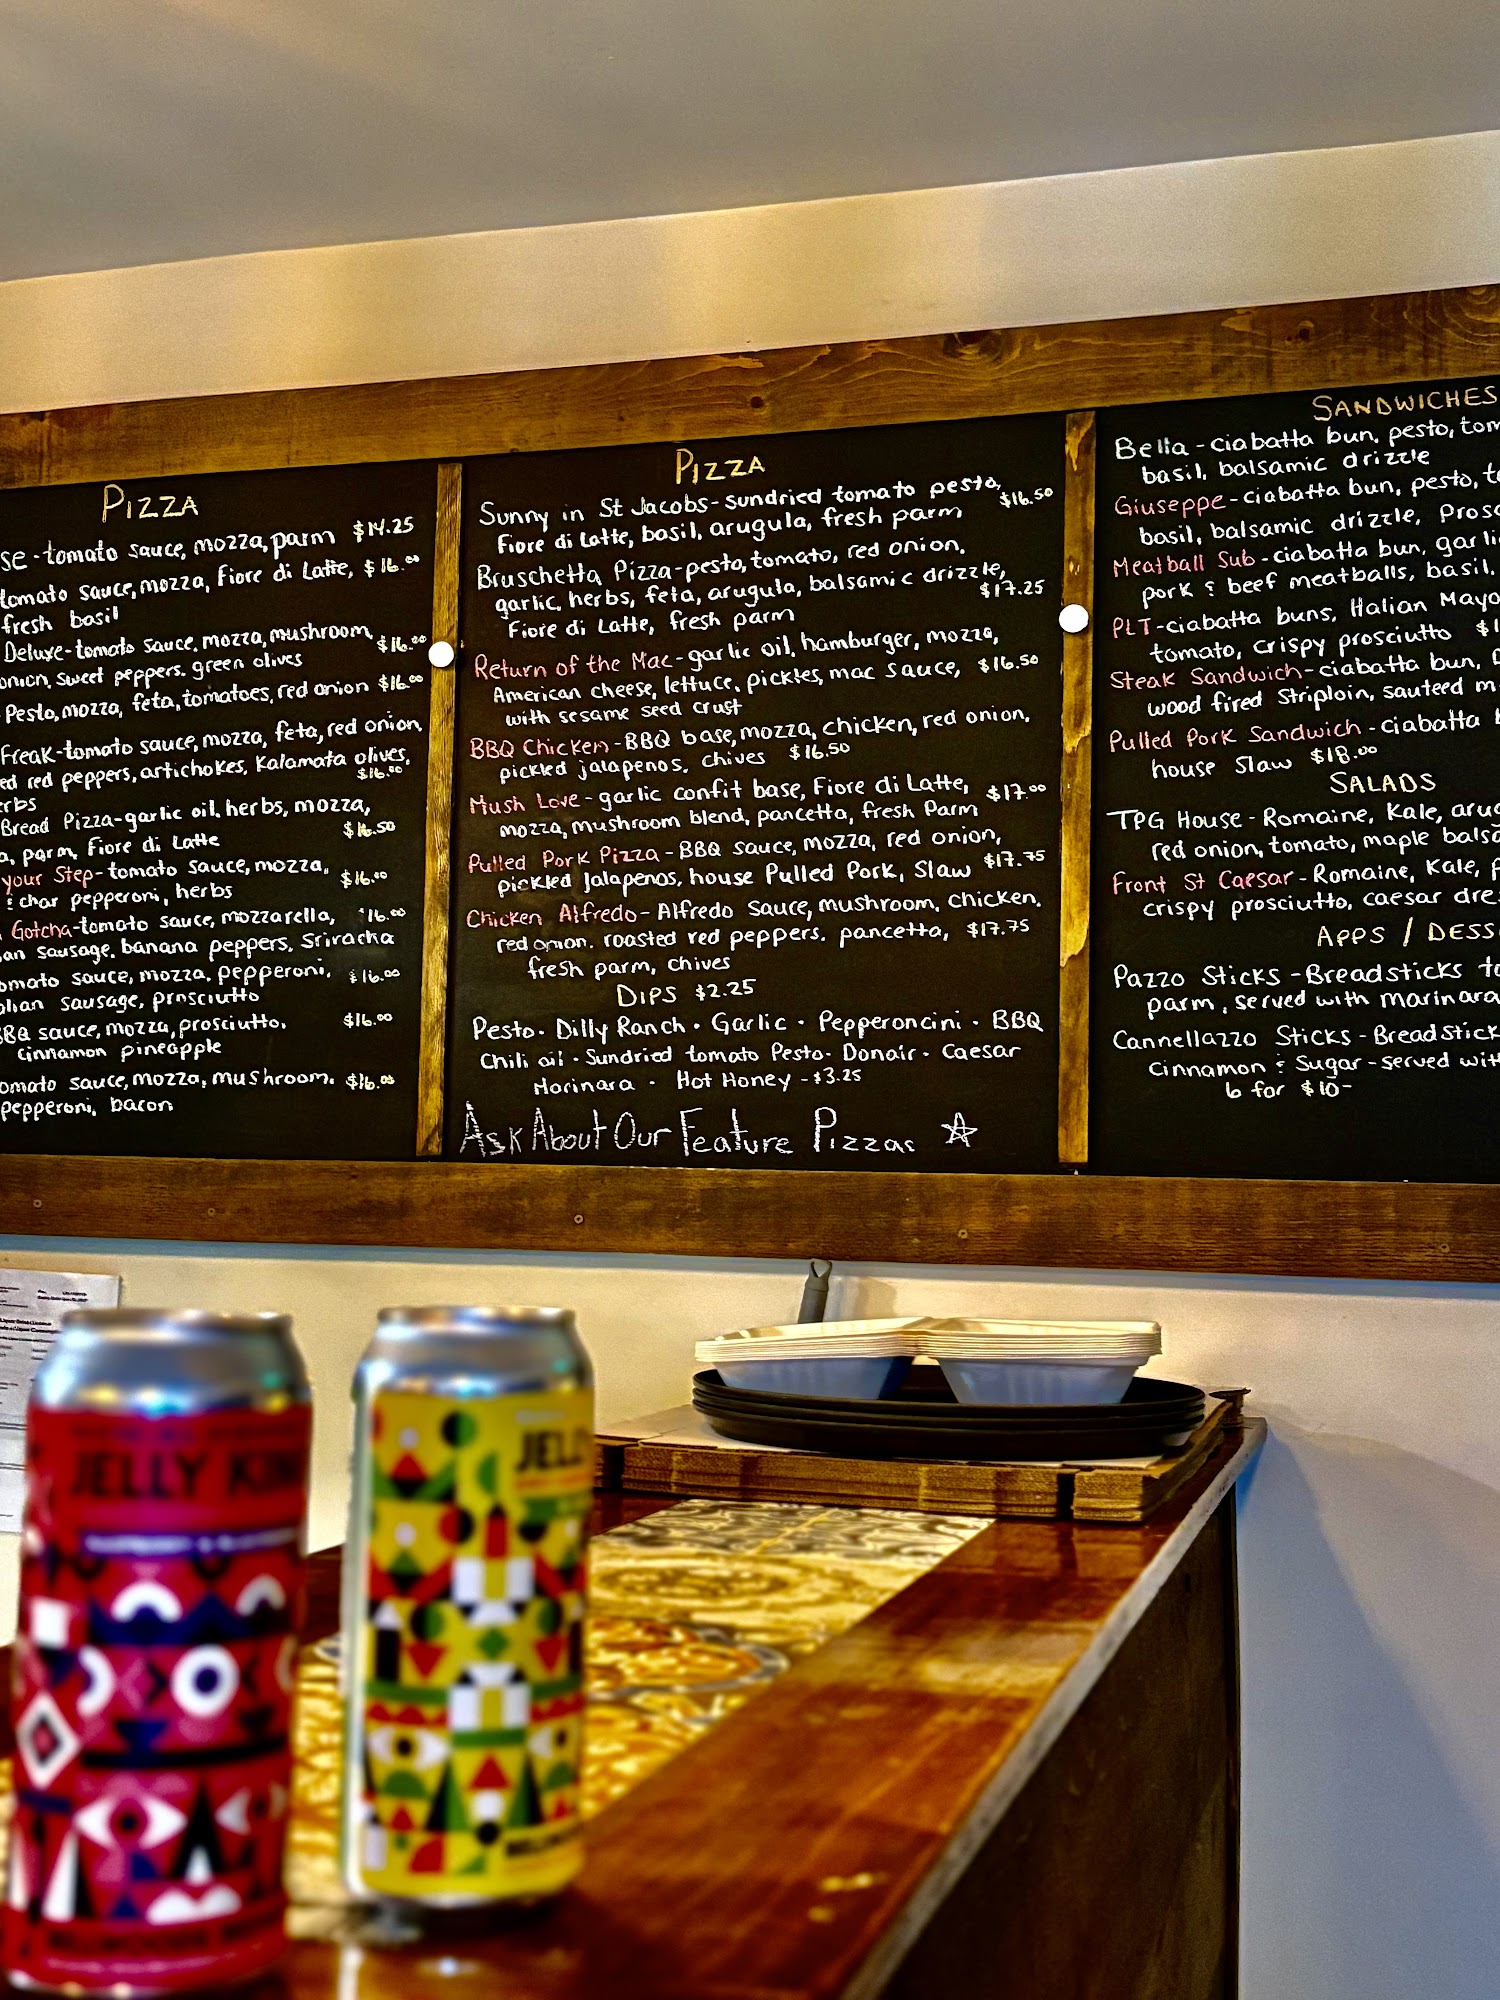 PIZZA
se - tomato sauce, mozza, parm $14.25
tomato sauce, mozza, Fiore di Latte, $16.00
fresh basil
Deluxe - tomato sauce, mozza, mushroom, $16.00
onion, sweet peppers, green olives
Pesto, mozza, feta, tomatoes, red onion $16.00
Freak - tomato sauce, mozza, feta, red onion,
ed red peppers, artichokes, Kalamata olives,
erbs $16.00
Bread Pizza - garlic oil, herbs, mozza,
a, parm, Fiore di Latte $16.50
your Step - tomato sauce, mozza,
& char pepperoni, herbs $16.00
Gotcha - tomato sauce, mozzarella, $16.00
an sausage, banana peppers, Sriracha
omato sauce, mozza, pepperoni, $16.00
alian sausage, prosciutto
BBQ sauce, mozza, prosciutto, $16.00
cinnamon pineapple
omato sauce, mozza, mushroom, $16.00
pepperoni, bacon
PIZZA
Sunny in St Jacobs - sundried tomato pesto,
Fiore di Latte, basil, arugula, fresh parm $16.50
Bruschetta Pizza - pesto, tomato, red onion,
garlic, herbs, feta, arugula, balsamic drizzle,
Fiore di Latte, fresh parm $17.25
Return of the Mac - garlic oil, hamburger, mozza,
American cheese, lettuce, pickles, mac sauce, $16.50
with sesame seed crust
BBQ Chicken - BBQ base, mozza, chicken, red onion,
pickled jalapenos, chives $16.50
Mush Love - garlic confit base, Fiore di Latte,
mozza, mushroom blend, pancetta, fresh Parm $17.00
Pulled Pork Pizza - BBQ sauce, mozza, red onion,
pickled jalapenos, house Pulled Pork, Slaw $17.75
Chicken Alfredo - Alfredo sauce, mushroom, chicken,
red onion, roasted red peppers, pancetta, $17.75
fresh parm, chives
DIPS $2.25
Pesto · Dilly Ranch · Garlic · Pepperoncini · BBQ
Chili oil · Sundried tomato Pesto · Donair · Caesar
Marinara · Hot Honey - $3.25
Ask About Our Feature Pizzas
SANDWICHES
Bella - ciabatta bun, pesto, tom
basil, balsamic drizzle
Giuseppe - ciabatta bun, pesto, to
basil, balsamic drizzle, Prosc
Meatball Sub - ciabatta bun, garli
pork & beef meatballs, basil,
PLT - ciabatta buns, Italian Mayo
tomato, crispy prosciutto $1
Steak Sandwich - ciabatta bun,
wood fired Striploin, sauteed m
Pulled Pork Sandwich - ciabatta
house slaw $18.00
SALADS
TPG House - Romaine, Kale, arug
red onion, tomato, maple balsa
Front St Caesar - Romaine, Kale,
crispy prosciutto, caesar dre
APPS / DESS
Pazzo Sticks - Breadsticks to
parm, served with marinara
Cannellazzo Sticks - Breadstick
cinnamon & Sugar - served wit
6 for $10-
JELLY KIN
JEL